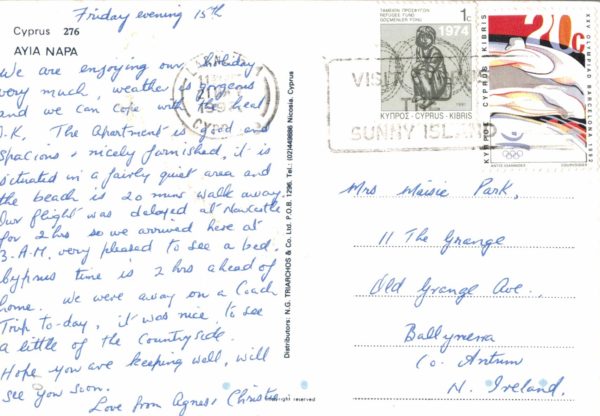 Friday evening 15th
Cyprus 276
AYIA NAPA
We are enjoying our holiday
very much, weather is gorgeous
and we can cope with the heat
O.K. The Apartment is good and
spacious & nicely furnished, it is
situated in a fairly quiet area and
the beach is 20 mins walk away.
Our flight was delayed at Newcastle
for 2 hrs so we arrived here at
3. A.M. very pleased to see a bed.
Cyprus time is 2 hrs ahead of
home. We were away on a Coach
Trip to-day, it was nice to see
a little of the Countryside.
Hope you are keeping well, will
see you soon.
Love from Agnes Christie
Distributors: N.G. TRIARCHOS & Co. Ltd. P.O.B. 1296, Tel. (02)448886 Nicosia, Cyprus
Copyright reserved
ΤΑΜΕΙΟΝ ΠΡΟΣΦΥΓΩΝ
REFUGEE FUND
GÖÇMENLER FONU
1c
1974
1991
ΚΥΠΡΟΣ · CYPRUS · KIBRIS
20c
ΚΥΠΡΟΣ CYPRUS KIBRIS
XXV OLYMPIAD BARCELONA 1992
VISIT
SUNNY ISLAND
Mrs Maisie Park,
11 The Grange
Old Grange Ave.,
Ballymena
Co. Antrim
N. Ireland.